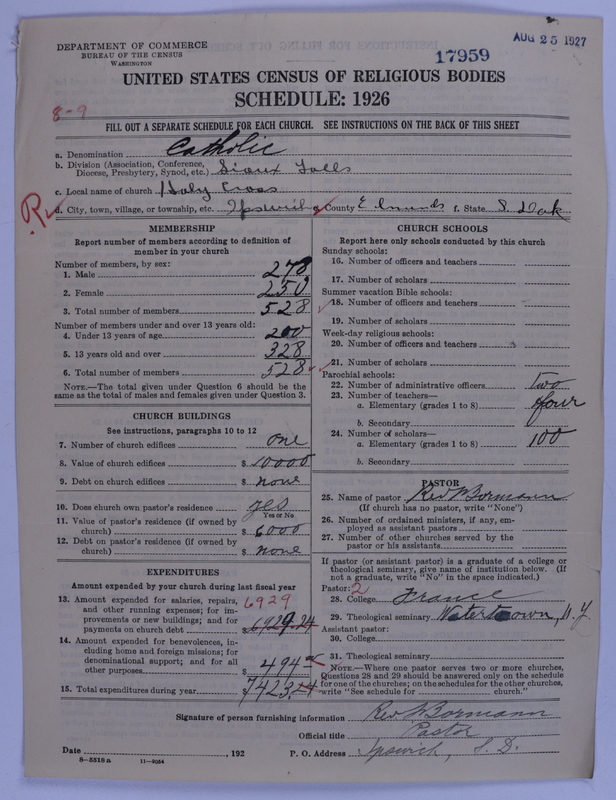 DEPARTMENT OF COMMERCE
BUREAU OF THE CENSUS
WASHINGTON
17959
AUG 25 1927
UNITED STATES CENSUS OF RELIGIOUS BODIES
SCHEDULE: 1926
8-9
FILL OUT A SEPARATE SCHEDULE FOR EACH CHURCH. SEE INSTRUCTIONS ON THE BACK OF THIS SHEET
a. Denomination Catholic
b. Division (Association, Conference, Diocese, Presbytery, Synod, etc.) Sioux Falls
c. Local name of church Holy Cross
d. City, town, village, or township, etc. Ipswich e. County Edmunds f. State S. Dak
MEMBERSHIP
Report number of members according to definition of
member in your church
Number of members, by sex:
1. Male 278
2. Female 250
3. Total number of members 528
Number of members under and over 13 years old:
4. Under 13 years of age 200
5. 13 years old and over 328
6. Total number of members 528
NOTE.—The total given under Question 6 should be the
same as the total of males and females given under Question 3.
CHURCH BUILDINGS
See instructions, paragraphs 10 to 12
7. Number of church edifices one
8. Value of church edifices $10000
9. Debt on church edifices $ none
10. Does church own pastor's residence yes
Yes or No
11. Value of pastor's residence (if owned by
church) $ 6000
12. Debt on pastor's residence (if owned by
church) $ none
EXPENDITURES
Amount expended by your church during last fiscal year
13. Amount expended for salaries, repairs, 6929
and other running expenses; for im-
provements or new buildings; and for
payments on church debt $ 6929.24
14. Amount expended for benevolences, in-
cluding home and foreign missions; for
denominational support; and for all
other purposes $ 494
15. Total expenditures during year $ 7423.24
CHURCH SCHOOLS
Report here only schools conducted by this church
Sunday schools:
16. Number of officers and teachers
17. Number of scholars
Summer vacation Bible schools:
18. Number of officers and teachers
19. Number of scholars
Week-day religious schools:
20. Number of officers and teachers
21. Number of scholars
Parochial schools:
22. Number of administrative officers two
23. Number of teachers—
a. Elementary (grades 1 to 8) four
b. Secondary
24. Number of scholars—
a. Elementary (grades 1 to 8) 100
b. Secondary
PASTOR
25. Name of pastor Rev Bormann
(If church has no pastor, write "None")
26. Number of ordained ministers, if any, em-
ployed as assistant pastors
27. Number of other churches served by the
pastor or his assistants
If pastor (or assistant pastor) is a graduate of a college or
theological seminary, give name of institution below. (If
not a graduate, write "No" in the space indicated.)
Pastor: 2
28. College France
29. Theological seminary Watertown, N.Y
Assistant pastor:
30. College
31. Theological seminary
NOTE.—Where one pastor serves two or more churches,
Questions 28 and 29 should be answered only on the schedule
for one of the churches; on the schedules for the other churches,
write "See schedule for church."
Signature of person furnishing information Rev Bormann
Official title Pastor
Date , 192 P. O. Address Ipswich, S. D.
8—5518 a 11—9054